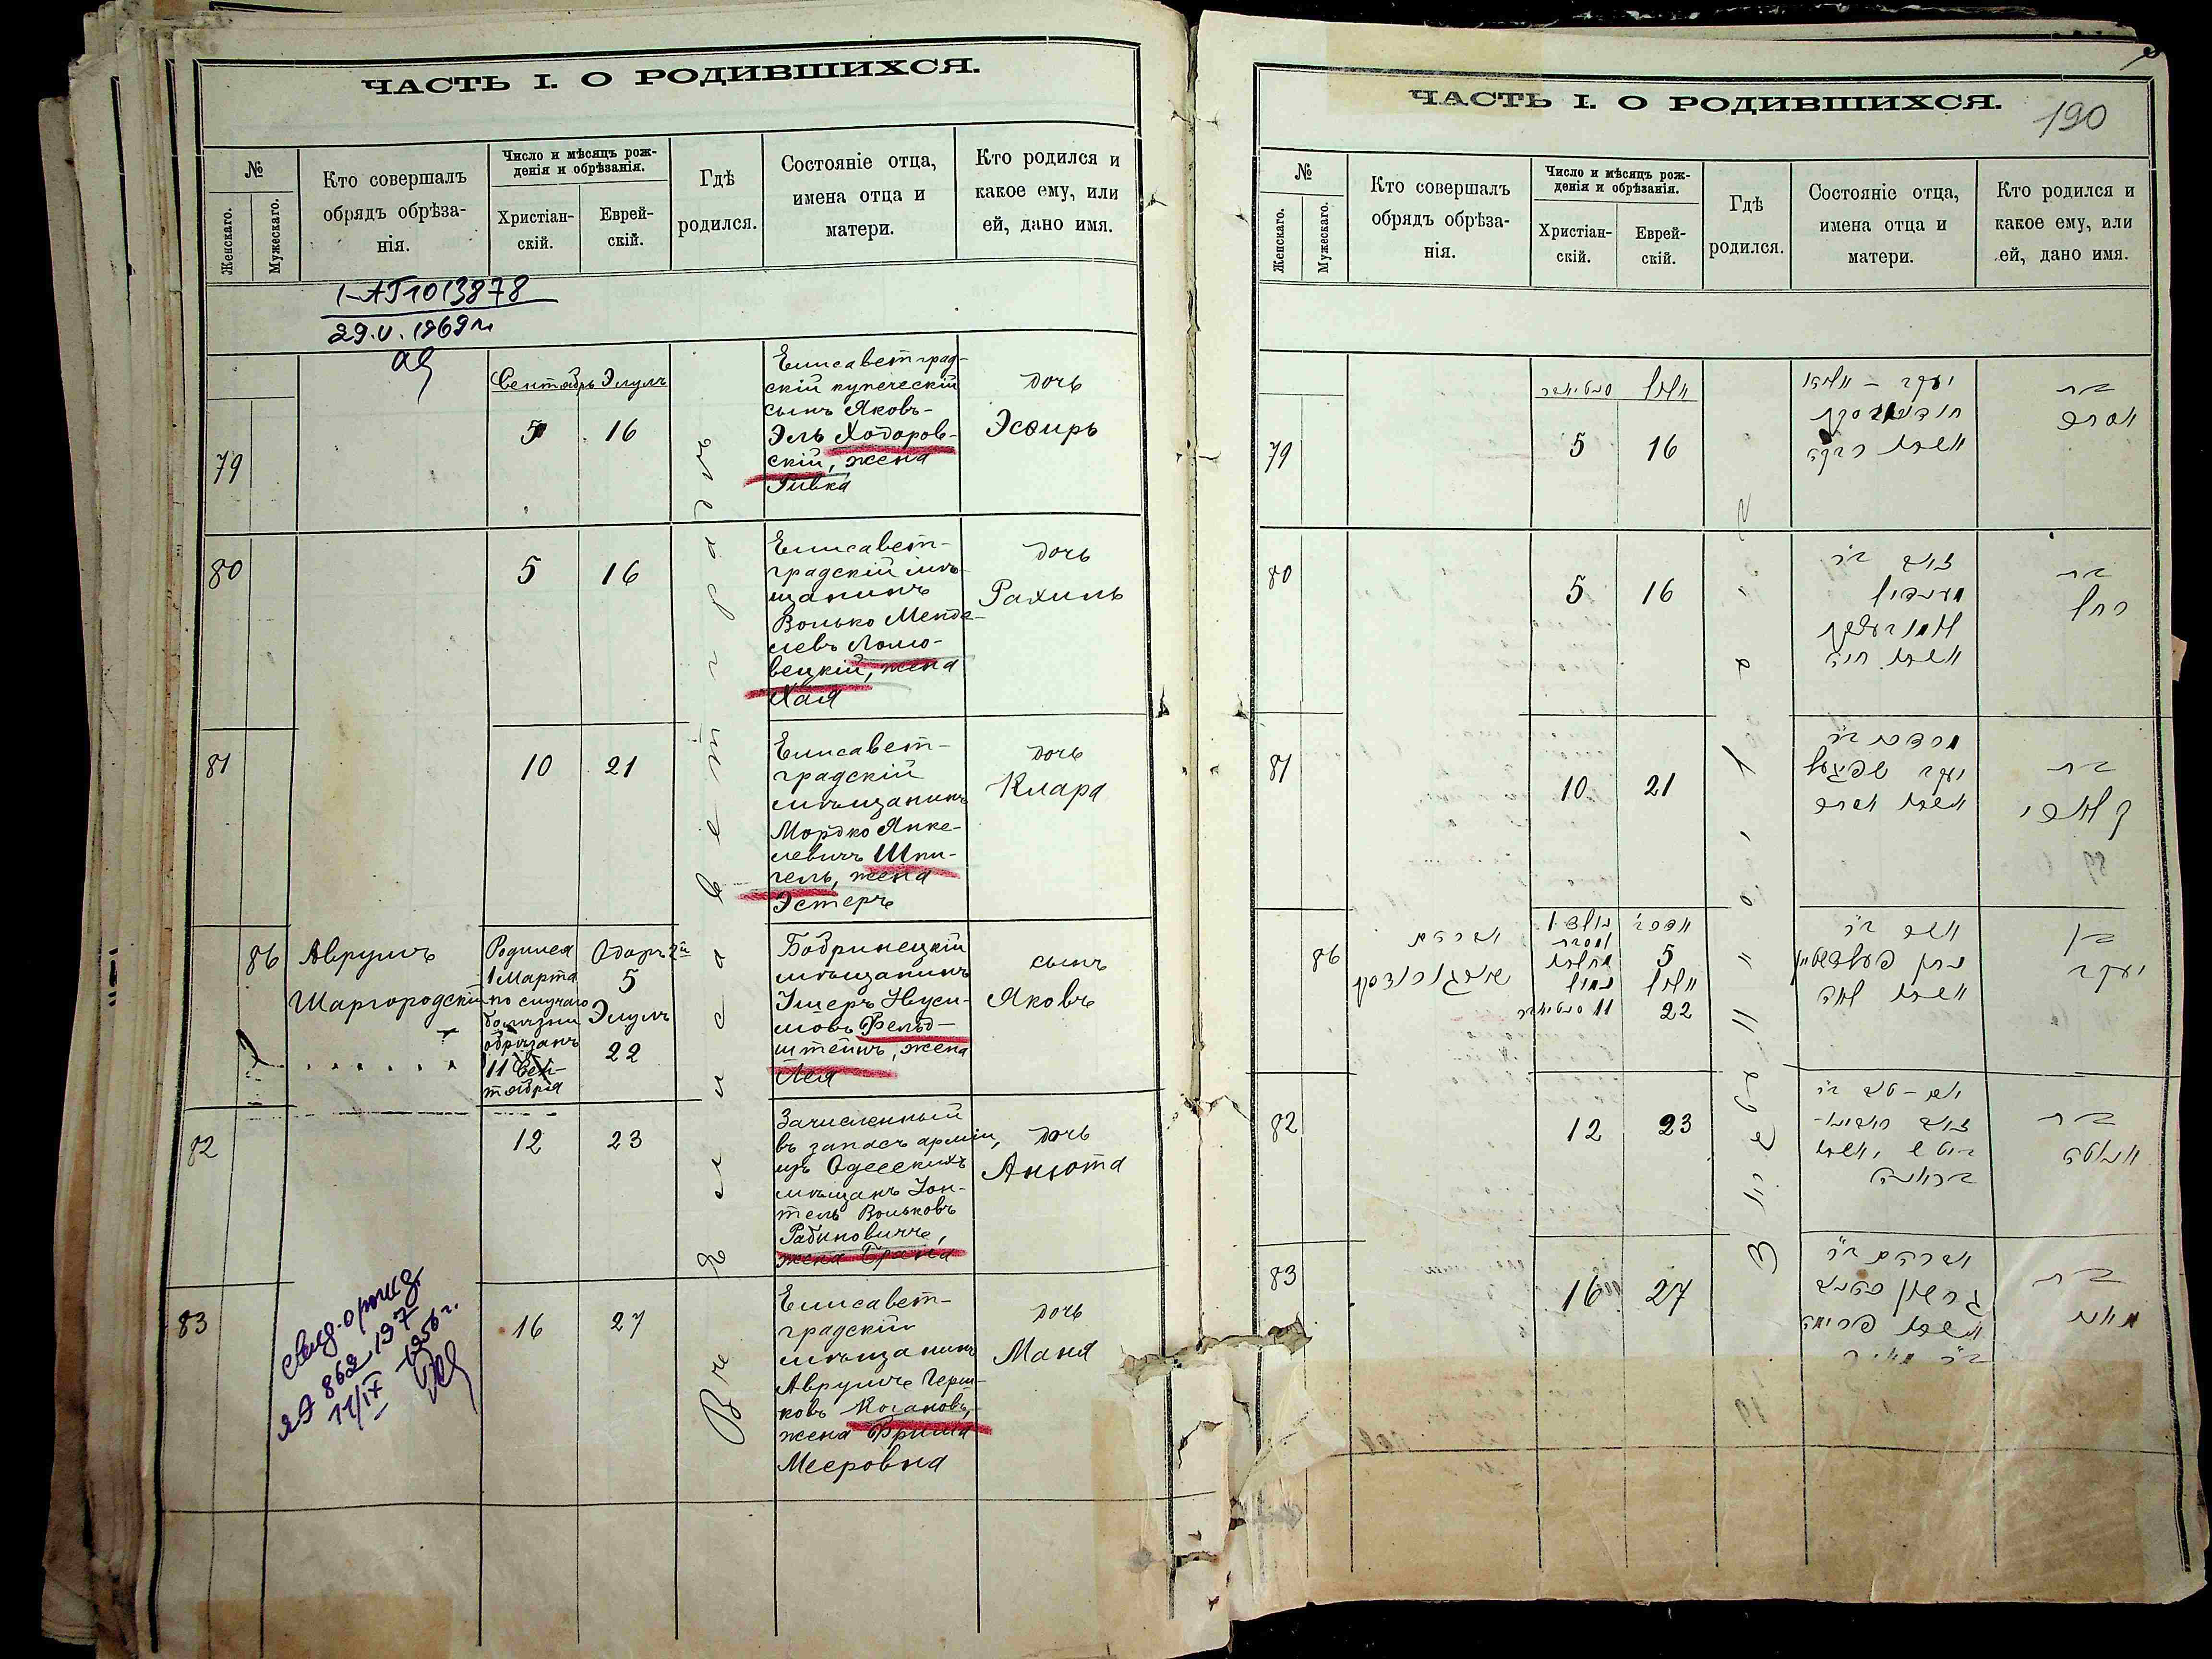 ЧАСТЬ I. О РОДИВШИХСЯ.
№
Женскаго.
Мужескаго.
Кто совершалъ
обрядъ обрѣза-
нія.
Число и мѣсяцъ рож-
денія и обрѣзанія.
Христіан-
скій.
Еврей-
скій.
Гдѣ
родился.
Состояніе отца,
имена отца и
матери.
Кто родился и
какое ему, или
ей, дано имя.
1013878
29.V.1969 г.
Въ Елисаветградѣ
79
Сентябрь Элулъ
5 16
Елисаветград-
скій купеческій
сынъ Яковъ-
Эль Ходоров-
скій, жена
Ривка
дочь
Эсѳирь
80
5 16
Елисавет-
градскій мѣ-
щанинъ
Волько Менде-
левъ Ломо-
вецкій, жена
Хая
дочь
Рахиль
81
10 21
Елисавет-
градскій
мѣщанинъ
Мордко Янке-
левичъ Шпи-
гель, жена
Эстеръ
дочь
Клара
86
Аврумъ
Шаргородскій
Родился
1 Марта
по случаю
болѣзни
обрѣзанъ
11 Сен-
тября
Одаръ 2й
5
Элулъ
22
Бобринецкій
мѣщанинъ
Ушеръ Нуси-
мовъ Фельд-
штейнъ, жена
Лея
сынъ
Яковъ
82
12 23
Зачисленный
въ запасъ арміи,
изъ Одесскихъ
мѣщанъ Зон-
тель Вольковъ
Рабиновичъ,
жена Брана
дочь
Анюта
83
свид. о рожд.
ЯЭ 862197
11/IX-1956 г.
16 27
Елисавет-
градскій
мѣщанинъ
Аврумъ Герш-
ковъ Кагановъ,
жена Фрима
Мееровна
дочь
Маня
ЧАСТЬ I. О РОДИВШИХСЯ.
190
№
Женскаго.
Мужескаго.
Кто совершалъ
обрядъ обрѣза-
нія.
Число и мѣсяцъ рож-
денія и обрѣзанія.
Христіан-
скій.
Еврей-
скій.
Гдѣ
родился.
Состояніе отца,
имена отца и
матери.
Кто родился и
какое ему, или
ей, дано имя.
79
אלול
5 16
אשתו רבקה
בת
אסתר
80
5 16
אשתו חיה
בת
רחל
81
10 21
מרדכי בר
יעקב שפיגעל
אשתו אסתר
בת
86
אברהם
5
אלול
11 22
אשר בר
אשתו לאה
בן
יעקב
82
12 23
בת
83
16 27
אברהם בר
אשתו פרימה
בת